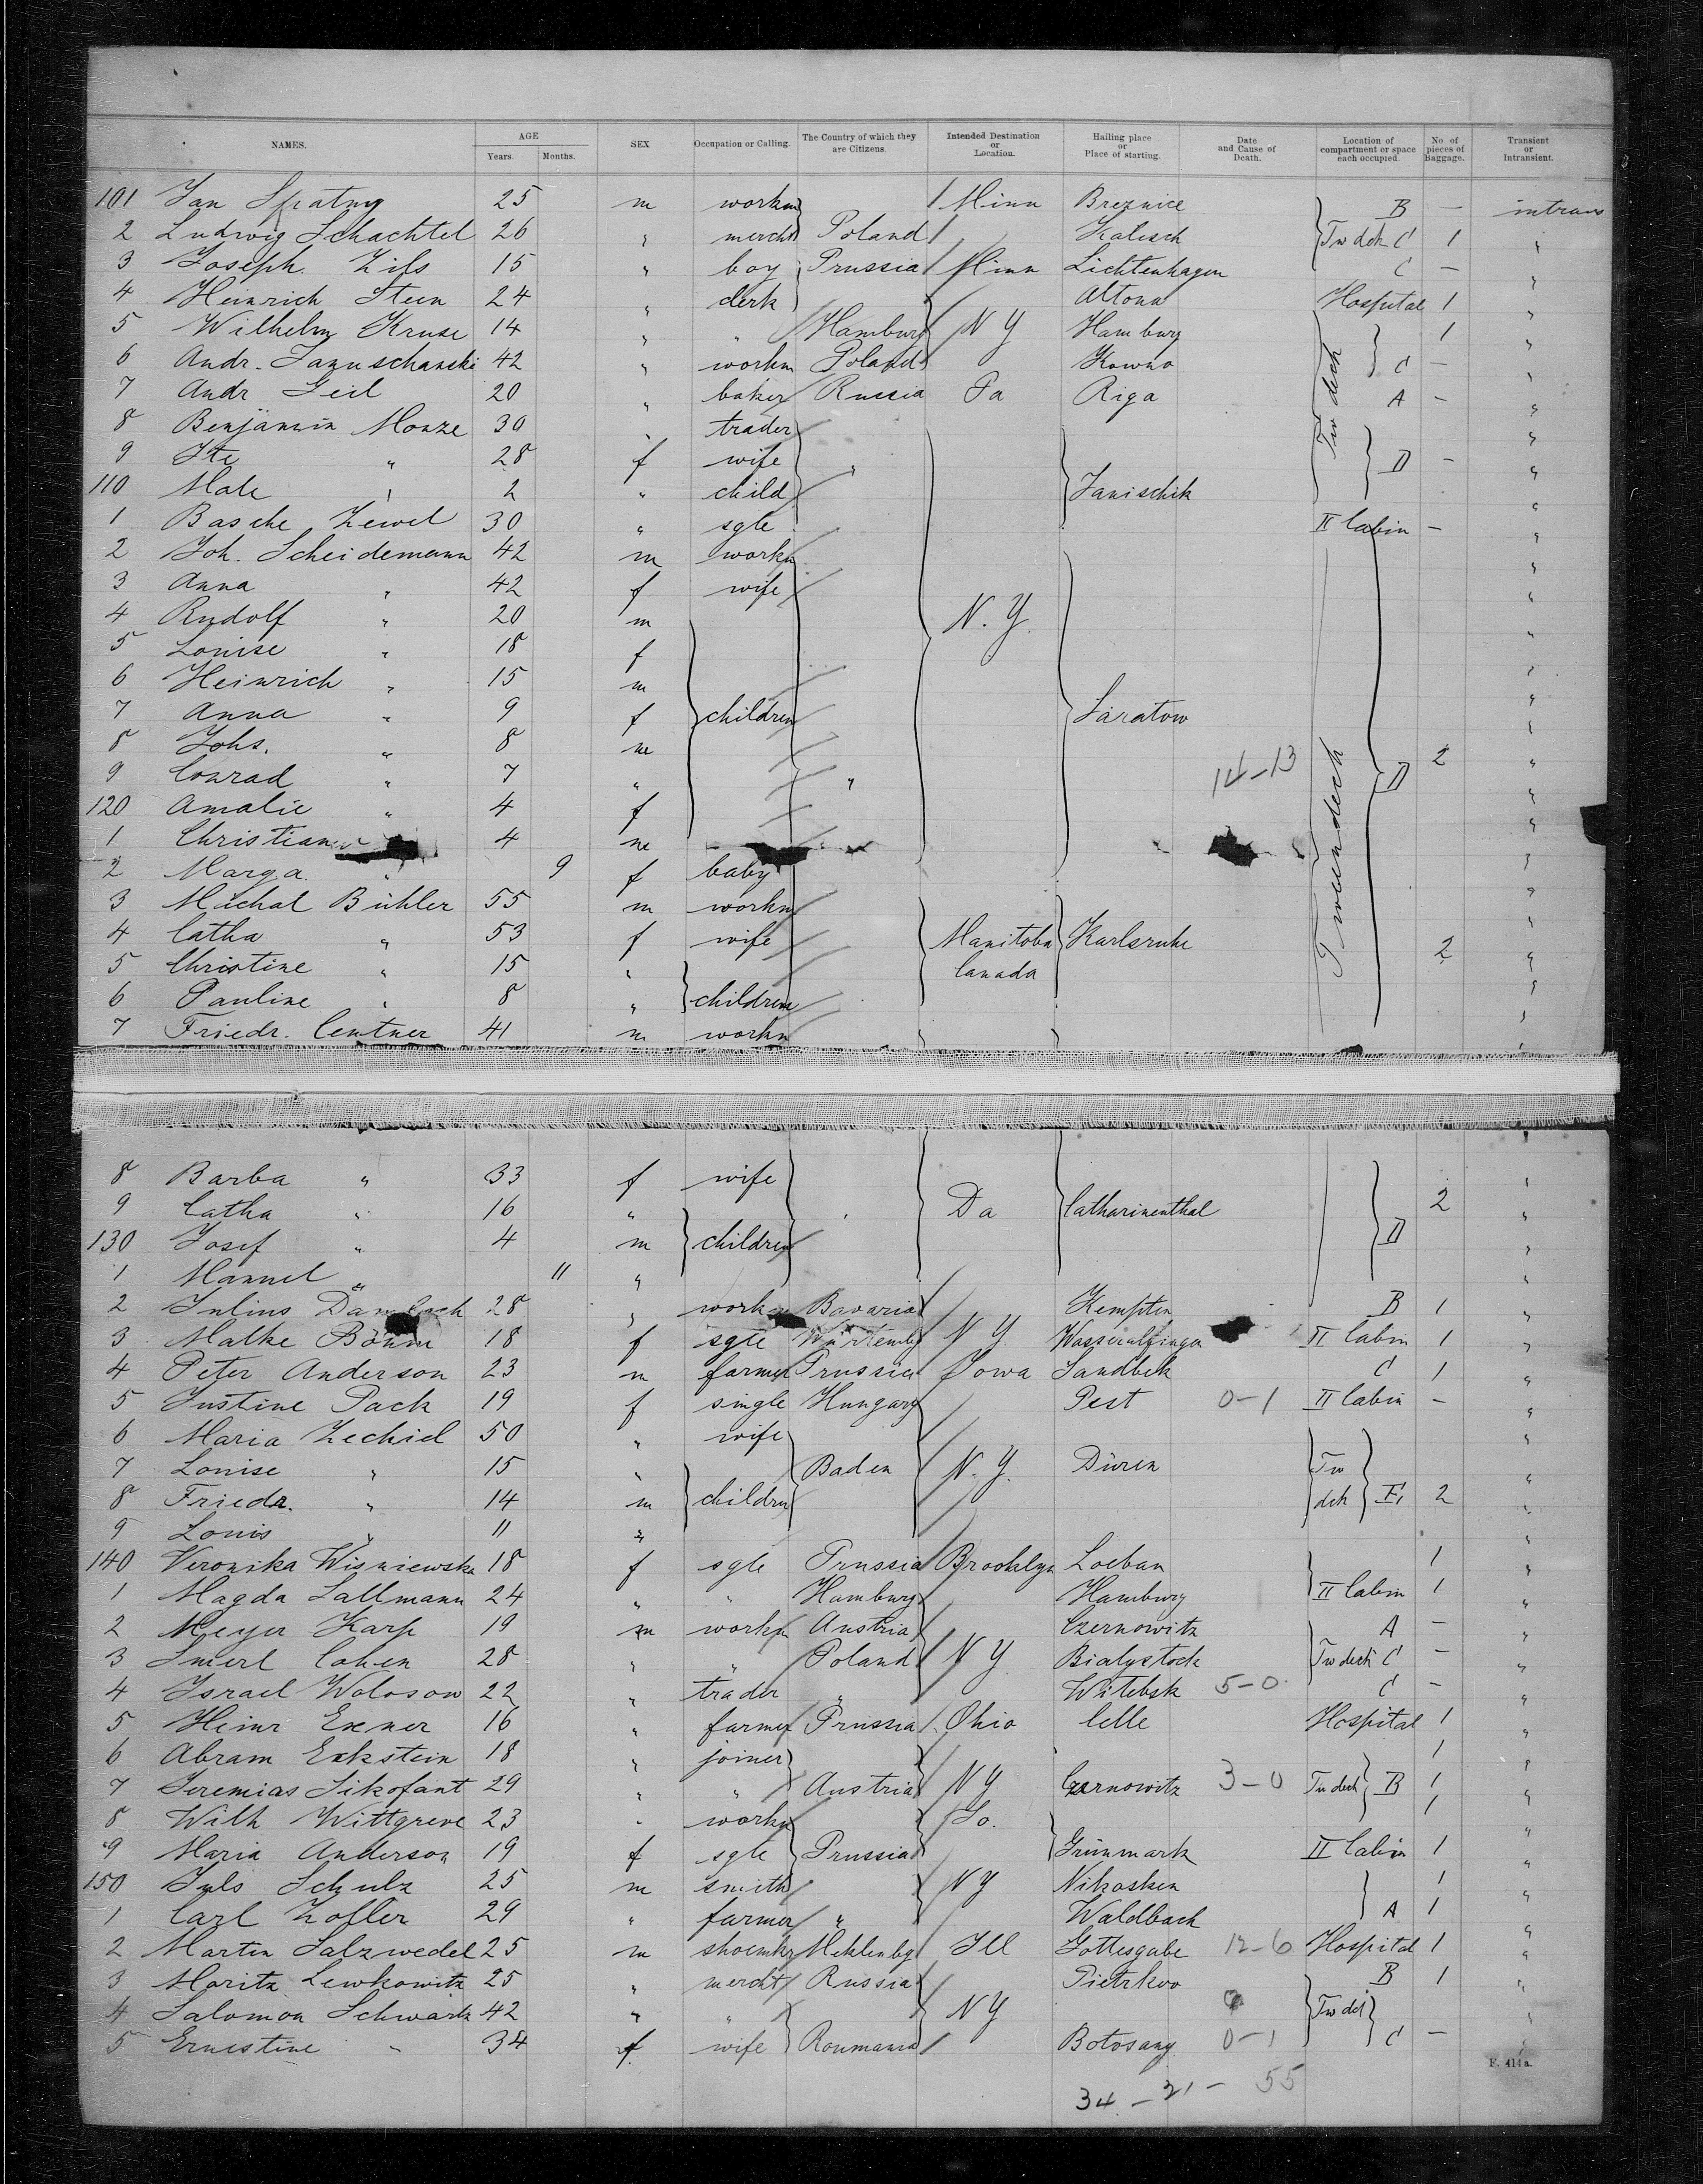 NAMES. AGE SEX Occupation or Calling. The Country of which they are Citizens. Intended Destination or Location. Hailing place or Place of starting. Date and Cause of Death. Location of compartment or space each occupied. No of pieces of Baggage. Transient or Intransient.
Years. Months.
101 Jan Spatny 25 m workm Minn Breznice B — intrans
2 Ludwig Schachtel 26 " mercht Poland Kalisch Tw dck C 1 "
3 Joseph Zils 15 " boy Prussia Minn Lichtenhagen C — "
4 Heinrich Steen 24 " clerk Altona Hospital 1 "
5 Wilhelm Kruse 14 " " Hamburg N Y Hamburg 1 "
6 Andr. Januschanski 42 " workm Poland Kowno C — "
7 Andr Geil 20 " baker Russia Pa Riga Tw deck A — "
8 Benjamin Monze 30 " trader "
9 Ite " 28 f wife " D — "
110 Male " 2 " child Janischik "
1 Basche Zewel 30 " sgle II Cabin — "
2 Joh. Scheidemann 42 m workm "
3 Anna " 42 f wife "
4 Rudolf " 20 m N. Y. "
5 Louise " 18 f "
6 Heinrich " 15 m "
7 Anna " 9 f children Saratow "
8 Johs. " 8 m 2 "
9 Conrad " 7 " " 14-13 Tweendeck D "
120 Amalie " 4 f "
1 Christian 4 m "
2 Marga. " 9 f baby "
3 Michal Bühler 55 m workm "
4 Catha " 53 f wife Manitoba Karlsruhe 2 "
5 Christine " 15 " Canada "
6 Pauline " 8 " children "
7 Friedr. Centner 41 m workm "
8 Barba " 33 f wife "
9 Catha " 16 " Da Catharinenthal 2 "
130 Josef " 4 m children D "
1 Manuel " 11 " "
2 Julius 28 " workm Bavaria Kempten B 1 "
3 Malke Böhm 18 f sgle Würtembg N Y Wasseralfingen II Cabin 1 "
4 Peter Anderson 23 m farmer Prussia Iowa Sandbek C 1 "
5 Justine Pack 19 f single Hungary Pest 0-1 II Cabin — "
6 Maria Zechiel 50 " wife "
7 Louise " 15 " Baden N. Y. Düren Tw "
8 Friedr. " 14 m children dck E 2 "
9 Louis " 11 " "
140 Veronika Wisniewska 18 f sgle Prussia Brooklyn Loebau 1 "
1 Magda Sallmann 24 " " Hamburg Hamburg II Cabin 1 "
2 Meyer Karp 19 m workm Austria Czernowitz A — "
3 Smerl Cohen 28 " " Poland N Y Bialystock Tw deck C — "
4 Israel Woloson 22 " trader " Witebsk 5-0 C — "
5 Heinr Exner 16 " farmer Prussia Ohio Celle Hospital 1 "
6 Abram Eckstein 18 " joiner 1 "
7 Jeremias Sikofant 29 " " Austria N Y Czernowitz 3-0 Tw deck B 1 "
8 Wilh Wittgreve 23 " workm Io. 1 "
9 Maria Anderson 19 f sgle Prussia Grünmark II Cabin 1 "
150 Juls Schulz 25 m smith N Y Nikosken 1 "
1 Carl Zofler 29 " farmer " Waldbach A 1 "
2 Martin Salzwedel 25 m shoemkr Meklenbg Ill Gottesgabe 12-6 Hospital 1 "
3 Moritz Lewkowitz 25 " mercht Russia Pietrkow B 1 "
4 Salomon Schwartz 42 " " N Y Tw dck "
5 Ernestine " 34 f wife Roumania Botosany 0-1 C — "
F. 414a.
34-21-55